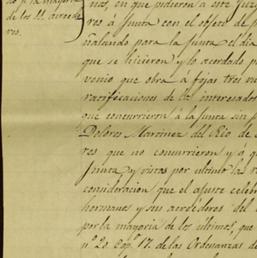 de los SS. acreedo
res.
nas, en que pidieron a este juz
res á Junta con el objeto de
ñalando para la Junta el dia
que se hicieron y lo acordado
venio que obra a fojas tres
ratificaciones de los interesados
que concurrieron á la Junta sin
Dolores Martinez del Rio de
res que no concurrieron y á
Junta y vistos por ultimo la
consideracion que el ajuste celebr
hermanos y sus acrehedores del
por la mayoria de los ultimos, que
nº 20. Cap. 17. de las Ordenanzas de